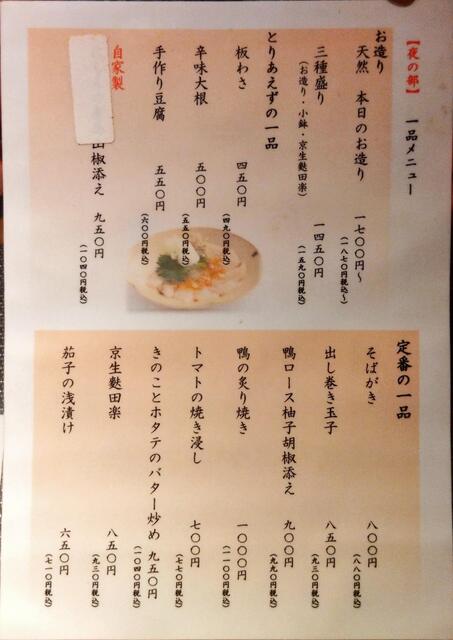 【夜の部】 一品メニュー
お造り
天然 本日のお造り 一七〇〇円～
(一八七〇円税込)～
三種盛り 一四五〇円
(お造り・小鉢・京生麩田楽)
(一五九〇円税込)
とりあえずの一品
板わさ 四五〇円
(四九〇円税込)
辛味大根 五〇〇円
(五五〇円税込)
手作り豆腐 五五〇円
(六〇〇円税込)
自家製
椒添え 九五〇円
(一〇四〇円税込)
定番の一品
そばがき 八〇〇円
(八八〇円税込)
出し巻き玉子 八五〇円
(九三〇円税込)
鴨ロース柚子胡椒添え 九〇〇円
(九九〇円税込)
鴨の炙り焼き 一〇〇〇円
(一一〇〇円税込)
トマトの焼き浸し 七〇〇円
(七七〇円税込)
きのことホタテのバター炒め 九五〇円
(一〇四〇円税込)
京生麩田楽 八五〇円
(九三〇円税込)
茄子の浅漬け 六五〇円
(七一〇円税込)